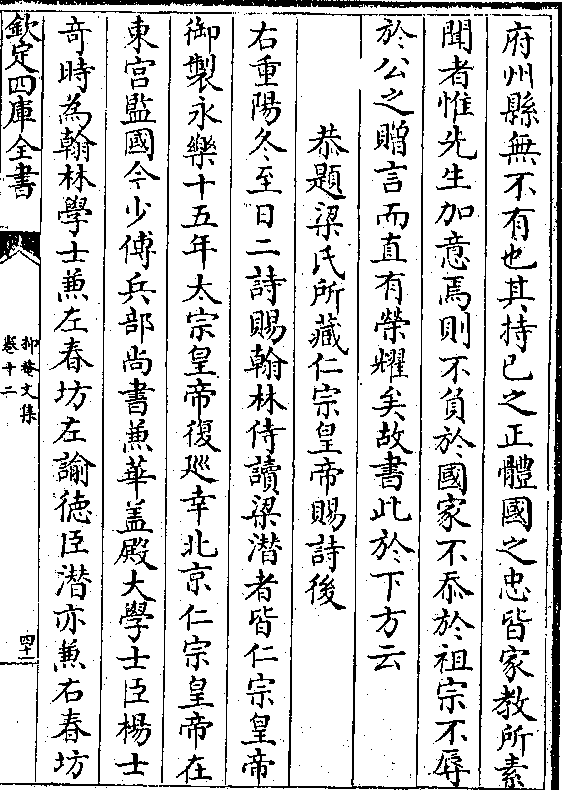 府州縣無不有也其持已之正體國之忠皆家教所素
聞者惟先生加意焉則不負於國家不忝於祖宗不辱
於公之贈言而直有榮耀矣故書此於下方云
恭題梁氏所藏仁宗皇帝賜詩後
右重陽冬至日二詩賜翰林侍讀梁潛者皆仁宗皇帝
御製永樂十五年太宗皇帝復廵幸北京仁宗皇帝在
東宫監國今少傅兵部尚書兼華盖殿大學士臣楊士
竒時為翰林學士兼左春坊左諭徳臣潛亦兼右春坊
欽定四庫全書
抑菴文集
卷十二
四十一